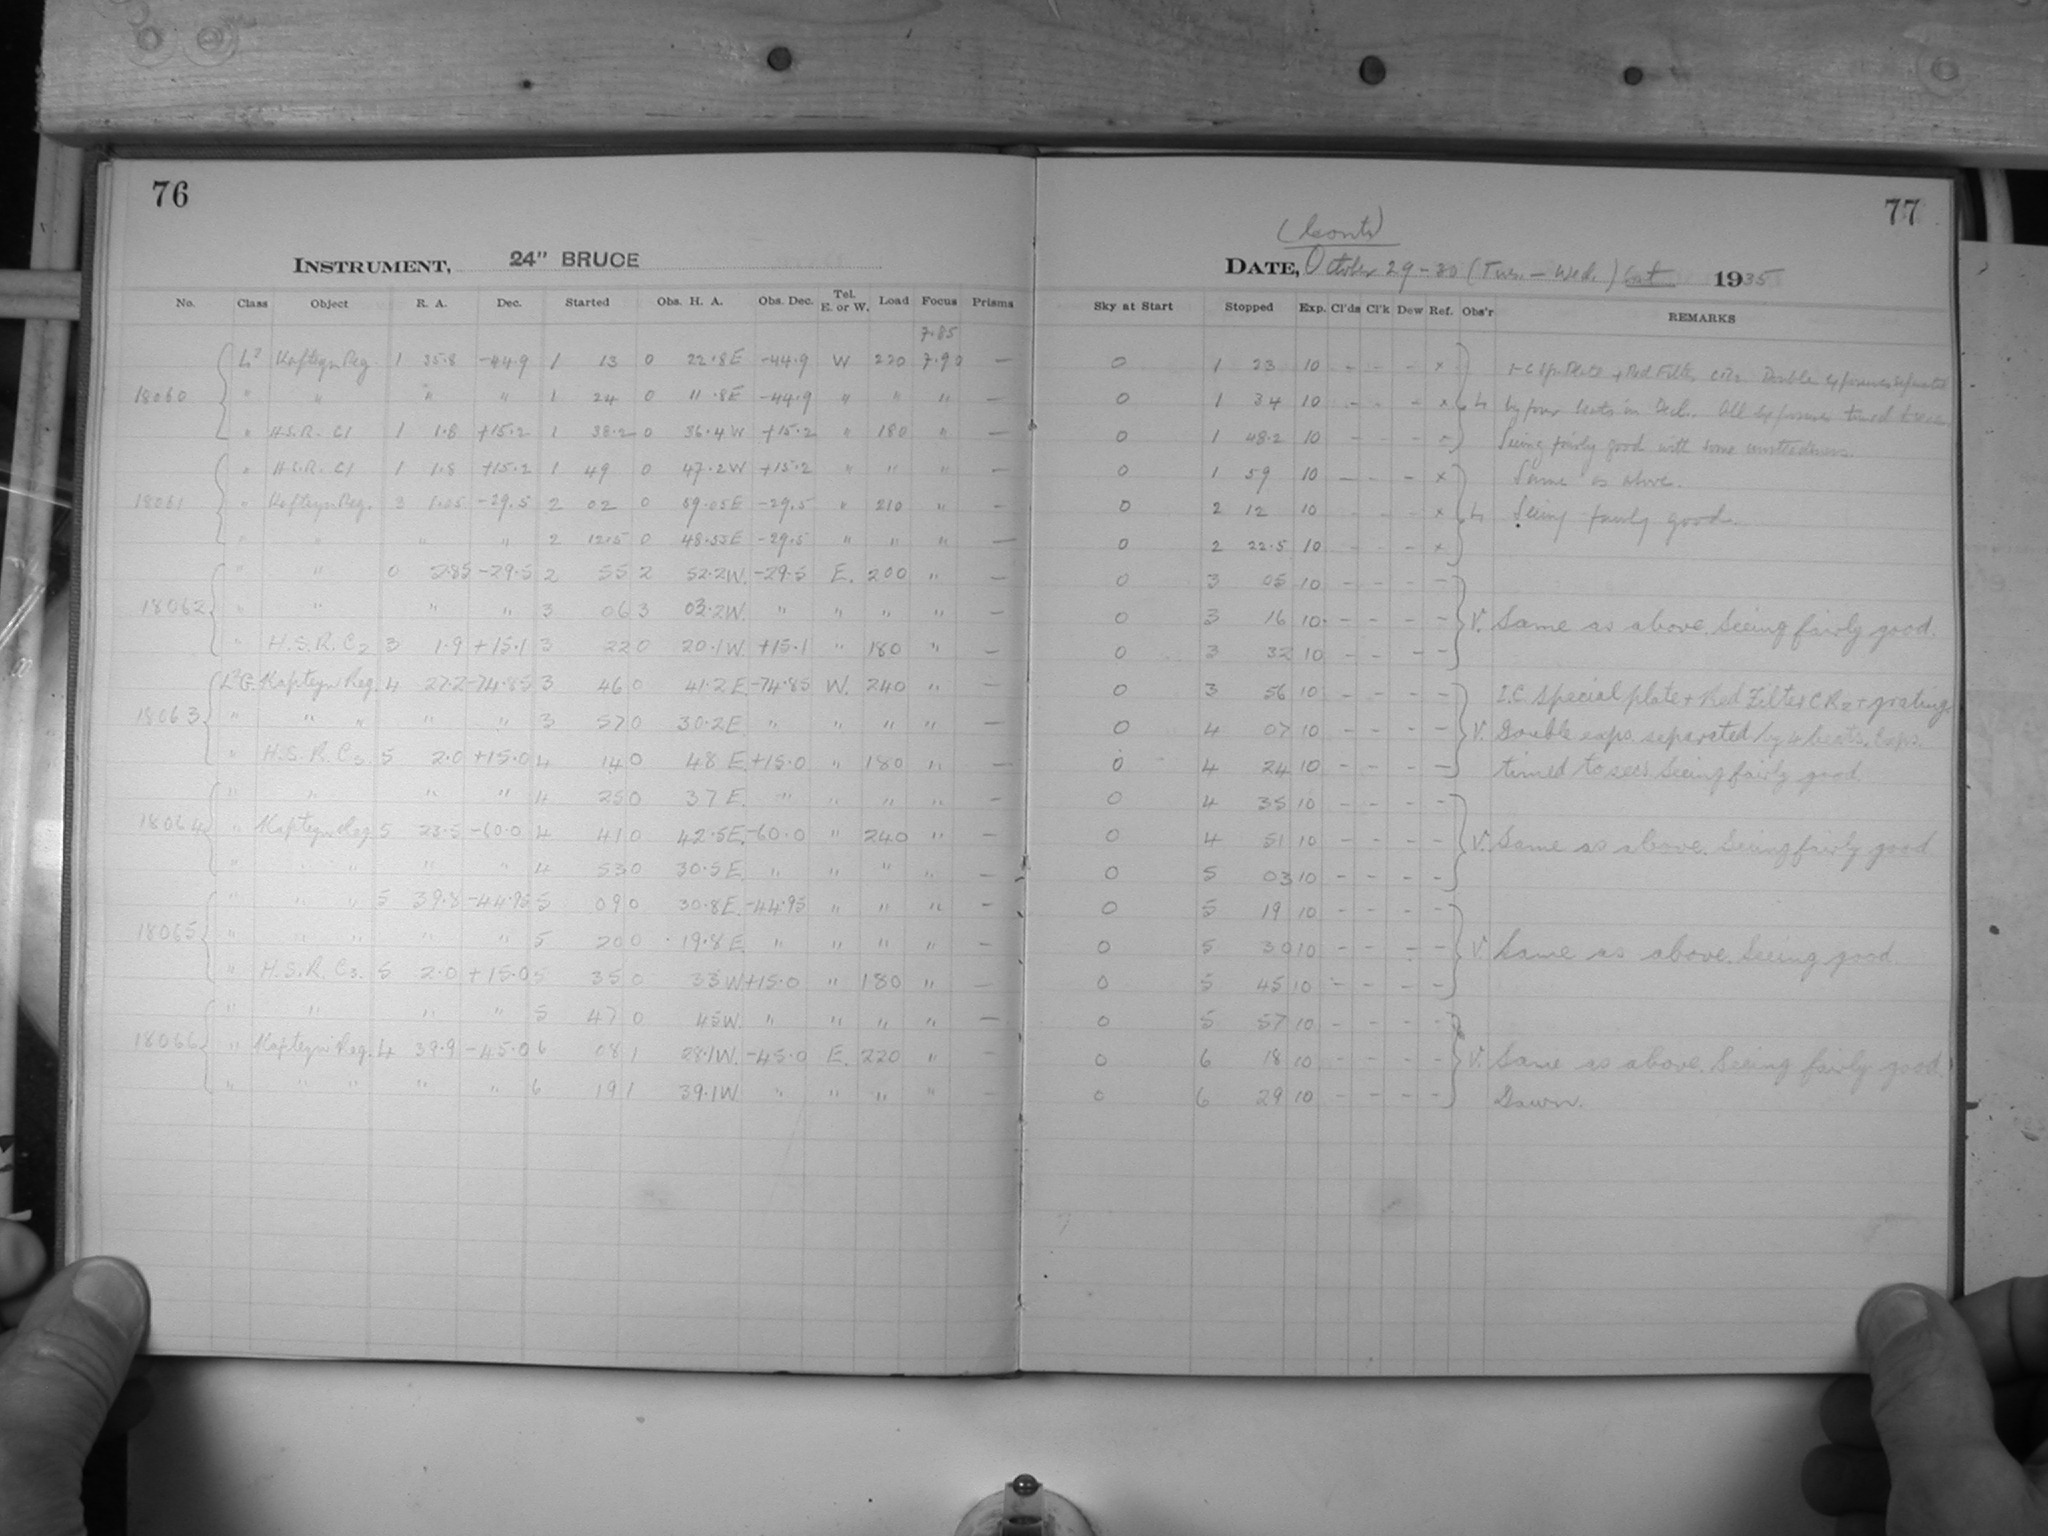 76
INSTRUMENT, 24" BRUCE
No. Class Object R. A. Dec. Started Obs. H. A. Obs. Dec. Tel. E. or W. Load Focus Prisms
7.85
L² Kapteyn Reg. 1 35.8 -44.9 1 13 0 22.8E -44.9 W 220 7.90 —
18060 " " " " 1 24 0 11.8E -44.9 " " " —
" H.S.R. C1 1 1.8 +15.2 1 38.2 0 36.4W +15.2 " 180 " —
" H.S.R. C1 1 1.8 +15.2 1 49 0 47.2W +15.2 " " " —
18061 " Kapteyn Reg. 3 1.05 -29.5 2 02 0 59.05E -29.5 " 210 " —
" " " " 2 12.5 0 48.55E -29.5 " " " —
" " 0 2.85 -29.5 2 55 2 52.2W. -29.5 E. 200 " —
18062 " " " " 3 06 3 03.2W. " " " " —
" H.S.R. C2 3 1.9 +15.1 3 22 0 20.1W. +15.1 " 180 " —
L²G. Kapteyn Reg. 4 27.2 -74.85 3 46 0 41.2E. -74.85 W. 240 " —
18063 " " " " " 3 57 0 30.2E. " " " " —
" H.S.R. C3 5 2.0 +15.0 4 14 0 48 E. +15.0 " 180 " —
" " " " 4 25 0 37 E. " " " " —
18064 " Kapteyn Reg. 5 23.5 -60.0 4 41 0 42.5E. -60.0 " 240 " —
" " " " " 4 53 0 30.5E. " " " " —
" " " 5 39.8 -44.95 5 09 0 30.8E. -44.95 " " " —
18065 " " " " " 5 20 0 19.8E. " " " " —
" H.S.R. C3. 5 2.0 +15.0 5 35 0 33W +15.0 " 180 " —
" " " " 5 47 0 45W. " " " " —
18066 " Kapteyn Reg. 4 39.9 -45.0 6 08 1 28.1W. -45.0 E. 220 " —
" " " " " 6 19 1 39.1W " " " " —
77
(Cont)
DATE, October 29-30 (Tues. - Wed.) Cont 1935
Sky at Start Stopped Exp. Cl'ds Cl'k Dew Ref. Obs'r REMARKS
0 1 23 10 - - - x I-C Sp. Plate + Red Filter CR2 Double exposures separated
0 1 34 10 - - - x by four beats in Dec. All exposures timed
0 1 48.2 10 - - - - Seeing fairly good with some unsteadiness.
0 1 59 10 - - - x Same as above.
0 2 12 10 - - - x Seeing fairly good.
0 2 22.5 10 - - - x
0 3 05 10 - - - -
0 3 16 10 - - - - V. Same as above. Seeing fairly good.
0 3 32 10 - - - -
0 3 56 10 - - - - I.C. Special plate + Red Filter CR2 + grating.
0 4 07 10 - - - - V. Double exps. separated by 4 beats. Exps.
0 4 24 10 - - - - timed to secs. Seeing fairly good.
0 4 35 10 - - - -
0 4 51 10 - - - - V. Same as above. Seeing fairly good
0 5 03 10 - - - -
0 5 19 10 - - - -
0 5 30 10 - - - - V. Same as above. Seeing good.
0 5 45 10 - - - -
0 5 57 10 - - - -
0 6 18 10 - - - - V. Same as above. Seeing fairly good.
0 6 29 10 - - - - Dawn.